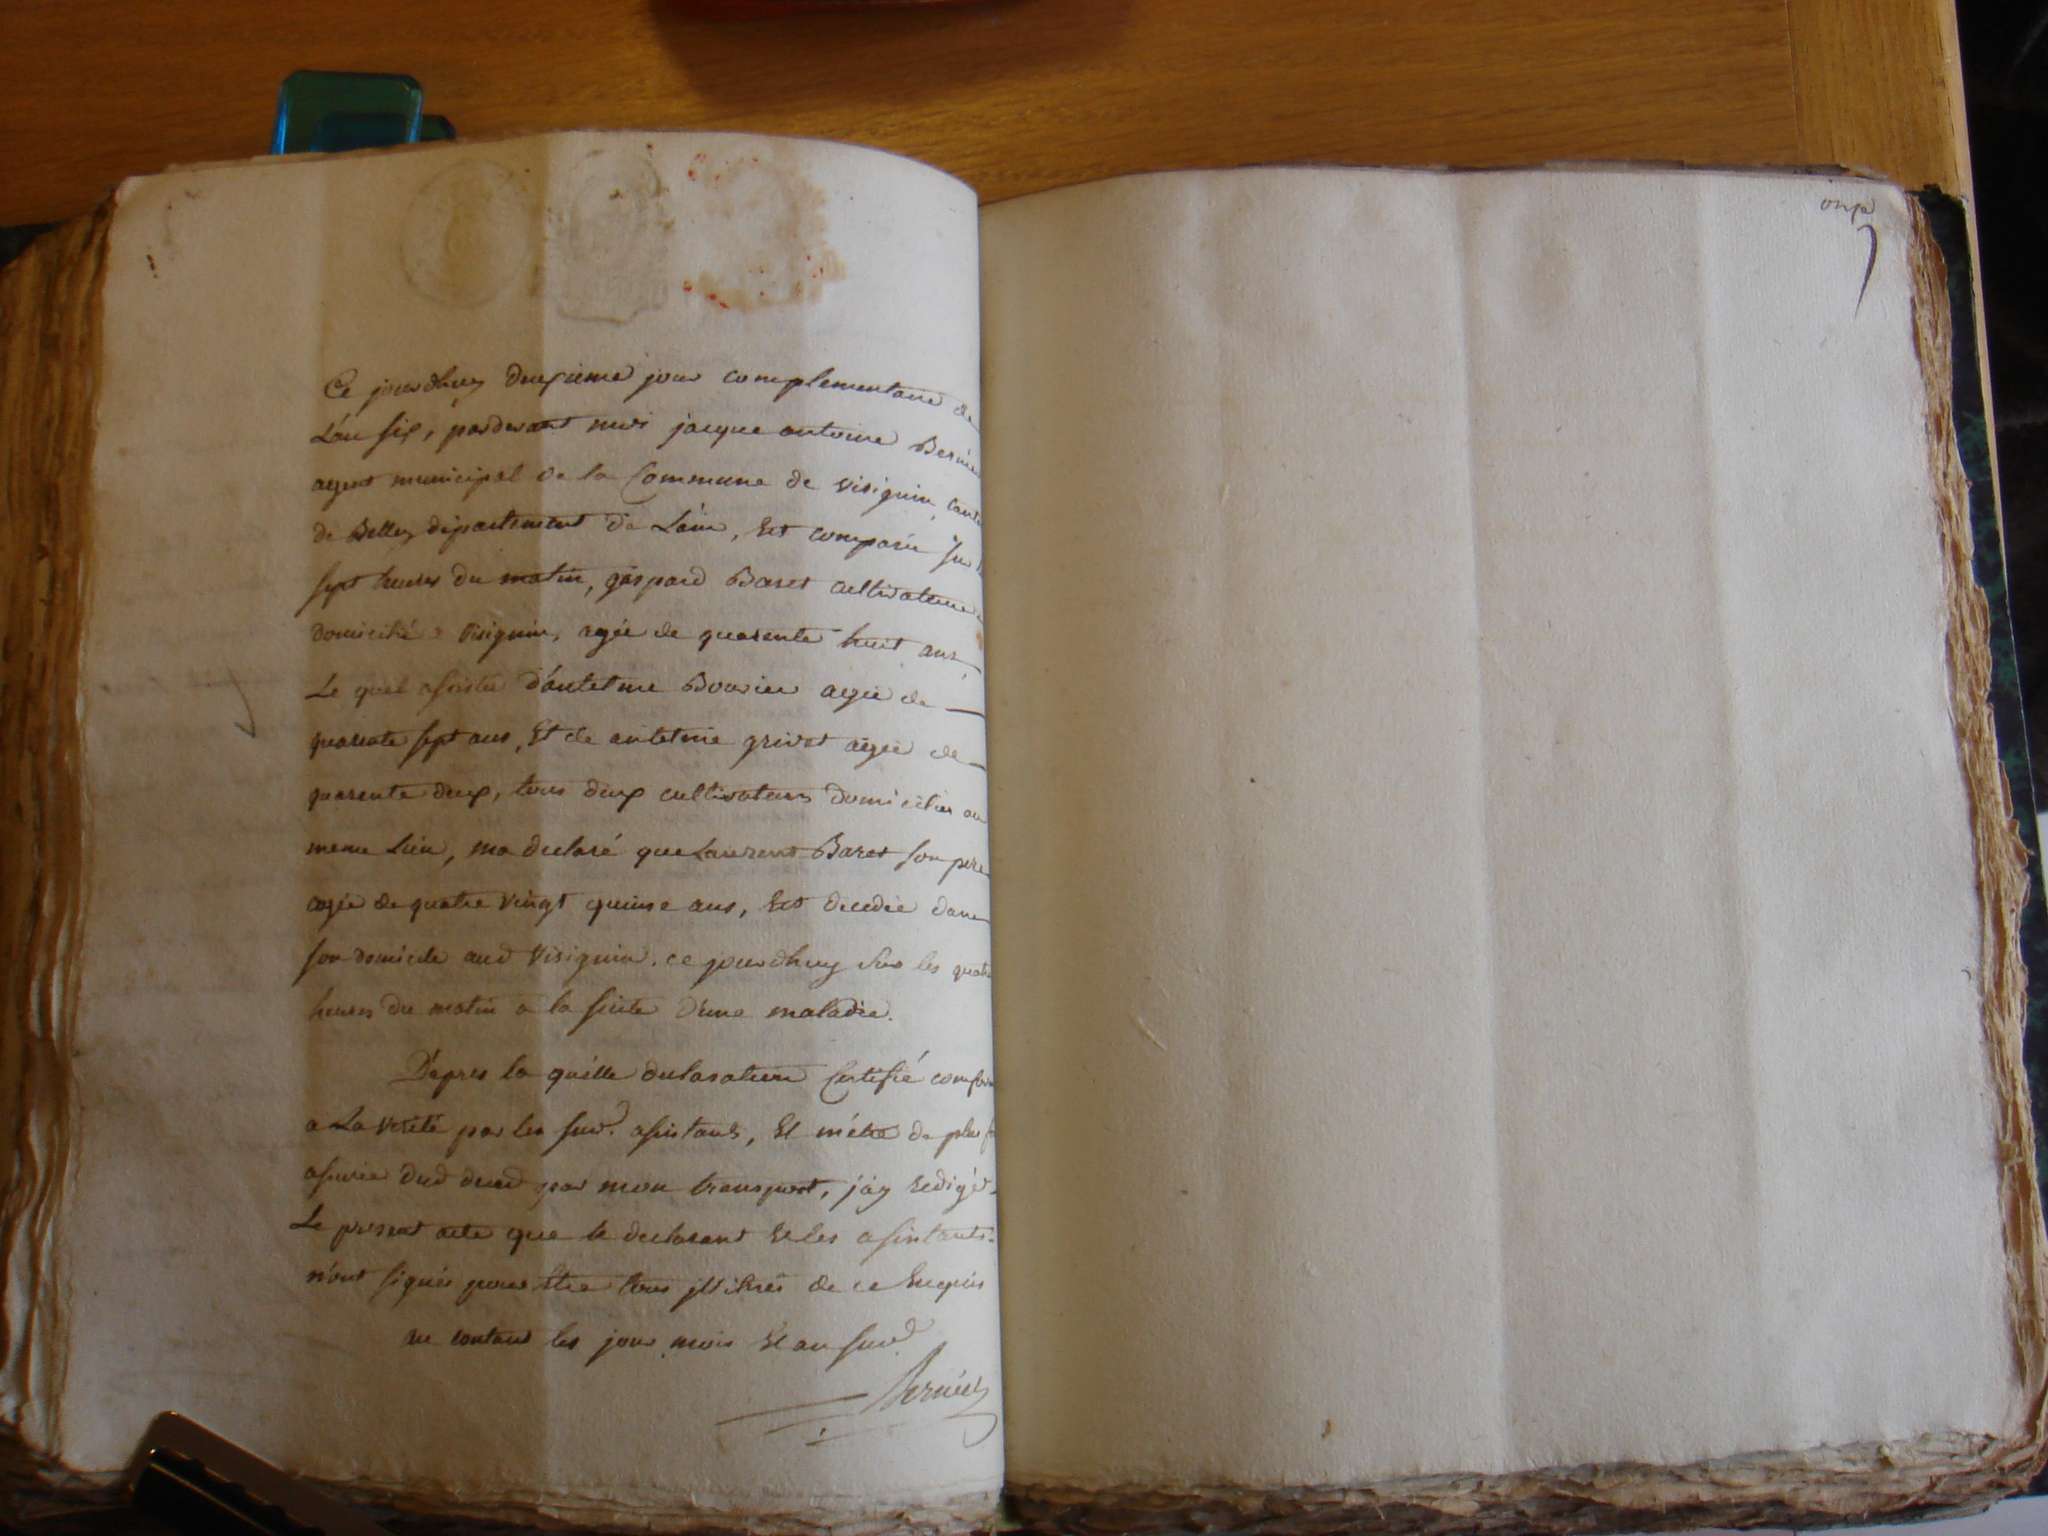 Ce jourdhuy deuxieme jour complementaire de
L'an six, pardevant moi jacque antoine Bernier
agent municipal de la Commune de Visignin, cant
de Belley département de L'ain, Est comparu sur
sept heures du matin, gaspard Baret cultivateur
domicilié a Visignin, agée de quarente huit ans,
Le quel assisté d'antelme Bouvier agée de
quarente sept ans, Et de antelme grivet agée de
quarente deux, tous deux cultivateurs domiciliés au
meme Lieu, ma declaré que Laurent Baret son pere
agée de quatre vingt quinse ans, Est decedée dans
son domicile aud Visignin. ce jourdhuy sur les quatre
heures du matin a la suite d'une maladie.
D'apres la quelle declaration Certifié conform
a La verité par les sud. assistants, Et m'étre de plus
assurée dud deced par mon transport, j'ay redigé
Le present acte que le declarant Et les assistants
n'ont signés pour Etre tous illitrés de ce Enquis
me contant les jour, mois Et an sud.
Bernier
onze